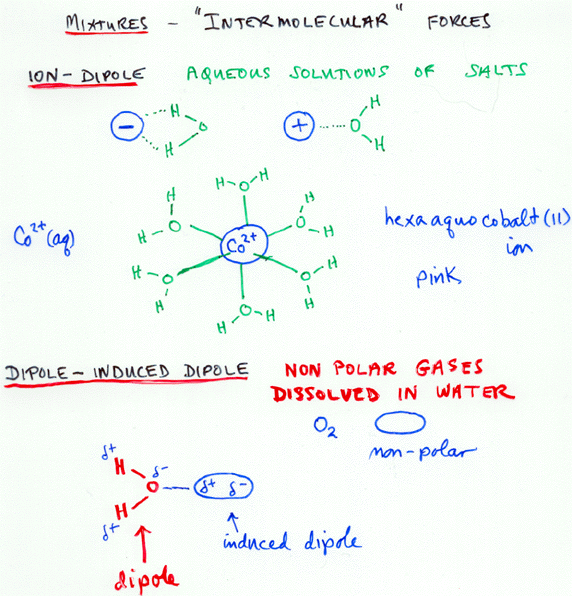 MIXTURES - "INTERMOLECULAR" FORCES
ION-DIPOLE AQUEOUS SOLUTIONS OF SALTS
− H O H
+ O H H
Co²⁺(aq)
H H O
H O H
H O H
H O H
Co²⁺
H O H
H O H
hexaaquocobalt(II)
ion
pink
DIPOLE-INDUCED DIPOLE
NON POLAR GASES
DISSOLVED IN WATER
O₂
non-polar
δ+ H
δ- O
H δ+
δ+ δ-
dipole
induced dipole